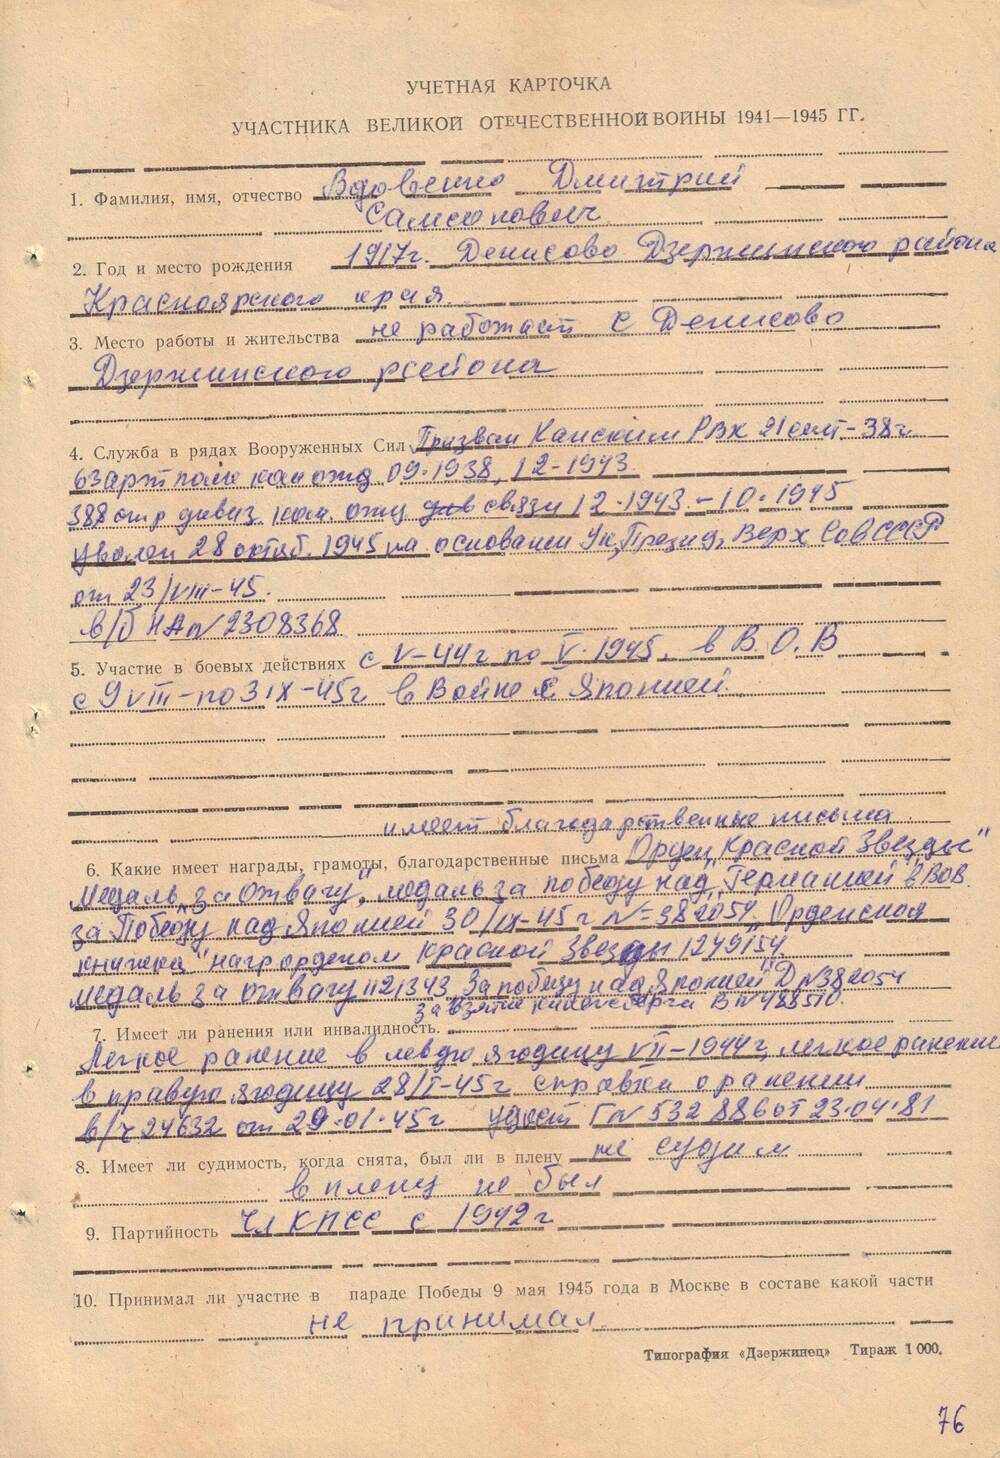 УЧЕТНАЯ КАРТОЧКА
УЧАСТНИКА ВЕЛИКОЙ ОТЕЧЕСТВЕННОЙ ВОЙНЫ 1941—1945 ГГ.
1. Фамилия, имя, отчество Вдовенко Дмитрий
Самсонович
2. Год и место рождения 1917г. Денисово Дзержинского района
Красноярского края
3. Место работы и жительства не работает с Денисово
Дзержинского района
4. Служба в рядах Вооруженных Сил Призван Канским РВК 21 сент-38г.
63 арт полк ком отд 09.1938, 12-1943.
388 стр дивиз. ком. отд связи 12.1943.-10.1945
уволен 28 октяб. 1945 на основании Ук. Презид. Верх Сов СССР
от 23/VIII-45.
в/б НА№ 2308368
5. Участие в боевых действиях с V-44г по V.1945. в В.О.В
с 9 VIII-по 3 IX-45г в Войне с Японией.
имеет благодарственные письма
6. Какие имеет награды, грамоты, благодарственные письма Орден „Красной Звезды"
медаль „за отвагу", медаль за победу над „Германией" в ВОВ.
за Победу над Японией 30/IX-45г №=382054, „Орденская
книжка" нагр орденом Красной Звезды 1249154
медаль за отвагу 1121343 „За победу над Японией" Д №382054
за взятие Кинегсберга В №488510.
7. Имеет ли ранения или инвалидность.
Легкое ранение в левую ягодицу VII-1944г, легкое ранение
в правую ягодицу 28/I-45г справка о ранении
в/ч 24632 от 29.01.45г удост Г№ 532 886 от 23.04.81
8. Имеет ли судимость, когда снята, был ли в плену не судим
в плену не был
9. Партийность Чл КПСС с 1942г
10. Принимал ли участие в параде Победы 9 мая 1945 года в Москве в составе какой части
не принимал
Типография «Дзержинец» Тираж 1 000.
76